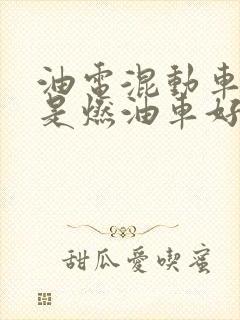 油電混動車
是燃油車好
甜瓜愛喫蜜